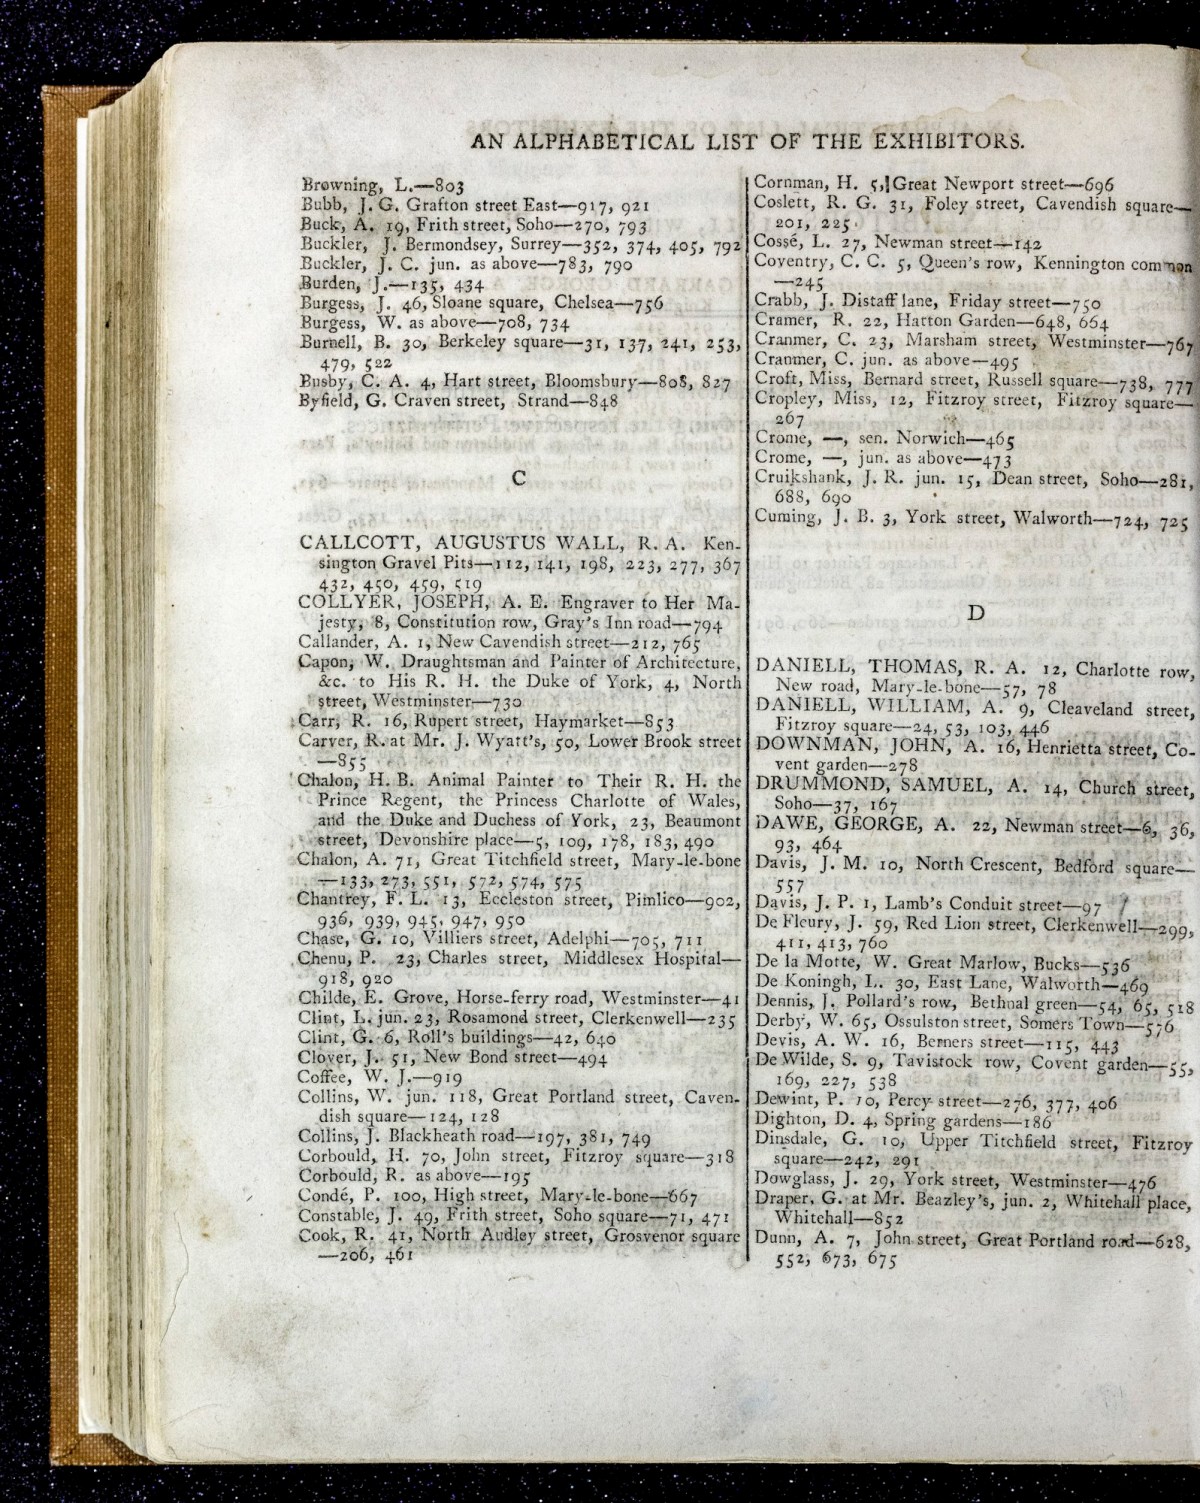 AN ALPHABETICAL LIST OF THE EXHIBITORS.
Browning, L.—803
Bubb, J. G. Grafton street East—917, 921
Buck, A. 19, Frith street, Soho—270, 793
Buckler, J. Bermondsey, Surrey—352, 374, 405, 792
Buckler, J. C. jun. as above—783, 790
Burden, J.—135, 434
Burgess, J. 46, Sloane square, Chelsea—756
Burgess, W. as above—708, 734
Burnell, B. 30, Berkeley square—31, 137, 241, 253,
479, 522
Busby, C. A. 4, Hart street, Bloomsbury—808, 827
Byfield, G. Craven street, Strand—848
C
CALLCOTT, AUGUSTUS WALL, R. A. Ken-
sington Gravel Pits—112, 141, 198, 223, 277, 367
432, 450, 459, 519
COLLYER, JOSEPH, A. E. Engraver to Her Ma-
jesty, 8, Constitution row, Gray's Inn road—794
Callander, A. 1, New Cavendish street—212, 765
Capon, W. Draughtsman and Painter of Architecture,
&c. to His R. H. the Duke of York, 4, North
street, Westminster—730
Carr, R. 16, Rupert street, Haymarket—853
Carver, R. at Mr. J. Wyatt's, 50, Lower Brook street
—855
Chalon, H. B. Animal Painter to Their R. H. the
Prince Regent, the Princess Charlotte of Wales,
and the Duke and Duchess of York, 23, Beaumont
street, Devonshire place—5, 109, 178, 183, 490
Chalon, A. 71, Great Titchfield street, Mary-le-bone
—133, 273, 551, 572, 574, 575
Chantrey, F. L. 13, Eccleston street, Pimlico—902,
936, 939, 945, 947, 950
Chase, G. 10, Villiers street, Adelphi—705, 711
Chenu, P. 23, Charles street, Middlesex Hospital—
918, 920
Childe, E. Grove, Horse-ferry road, Westminster—41
Clint, L. jun. 23, Rosamond street, Clerkenwell—235
Clint, G. 6, Roll's buildings—42, 640
Clover, J. 51, New Bond street—494
Coffee, W. J.—919
Collins, W. jun. 118, Great Portland street, Caven-
dish square—124, 128
Collins, J. Blackheath road—197, 381, 749
Corbould, H. 70, John street, Fitzroy square—318
Corbould, R. as above—195
Condé, P. 100, High street, Mary-le-bone—667
Constable, J. 49, Frith street, Soho square—71, 471
Cook, R. 41, North Audley street, Grosvenor square
—206, 461
Cornman, H. 5, Great Newport street—696
Coslett, R. G. 31, Foley street, Cavendish square—
201, 225
Cossé, L. 27, Newman street—142
Coventry, C. C. 5, Queen's row, Kennington common
—245
Crabb, J. Distaff lane, Friday street—750
Cramer, R. 22, Hatton Garden—648, 664
Cranmer, C. 23, Marsham street, Westminster—767
Cranmer, C. jun. as above—495
Croft, Miss, Bernard street, Russell square—738, 777
Cropley, Miss, 12, Fitzroy street, Fitzroy square—
267
Crome, —, sen. Norwich—465
Crome, —, jun. as above—473
Cruikshank, J. R. jun. 15, Dean street, Soho—281,
688, 690
Cuming, J. B. 3, York street, Walworth—724, 725
D
DANIELL, THOMAS, R. A. 12, Charlotte row,
New road, Mary-le-bone—57, 78
DANIELL, WILLIAM, A. 9, Cleaveland street,
Fitzroy square—24, 53, 103, 446
DOWNMAN, JOHN, A. 16, Henrietta street, Co-
vent garden—278
DRUMMOND, SAMUEL, A. 14, Church street,
Soho—37, 167
DAWE, GEORGE, A. 22, Newman street—6, 36,
93, 464
Davis, J. M. 10, North Crescent, Bedford square—
557
Davis, J. P. 1, Lamb's Conduit street—97
De Fleury, J. 59, Red Lion street, Clerkenwell—299,
411, 413, 760
De la Motte, W. Great Marlow, Bucks—536
De Koningh, L. 30, East Lane, Walworth—469
Dennis, J. Pollard's row, Bethnal green—54, 65, 518
Derby, W. 65, Ossulston street, Somers Town—576
Devis, A. W. 16, Berners street—115, 443
De Wilde, S. 9, Tavistock row, Covent garden—55,
169, 227, 538
Dewint, P. 10, Percy street—276, 377, 406
Dighton, D. 4, Spring gardens—186
Dinsdale, G. 10, Upper Titchfield street, Fitzroy
square—242, 291
Dowglass, J. 29, York street, Westminster—476
Draper, G. at Mr. Beazley's, jun. 2, Whitehall place,
Whitehall—852
Dunn, A. 7, John street, Great Portland road—628,
552, 673, 675